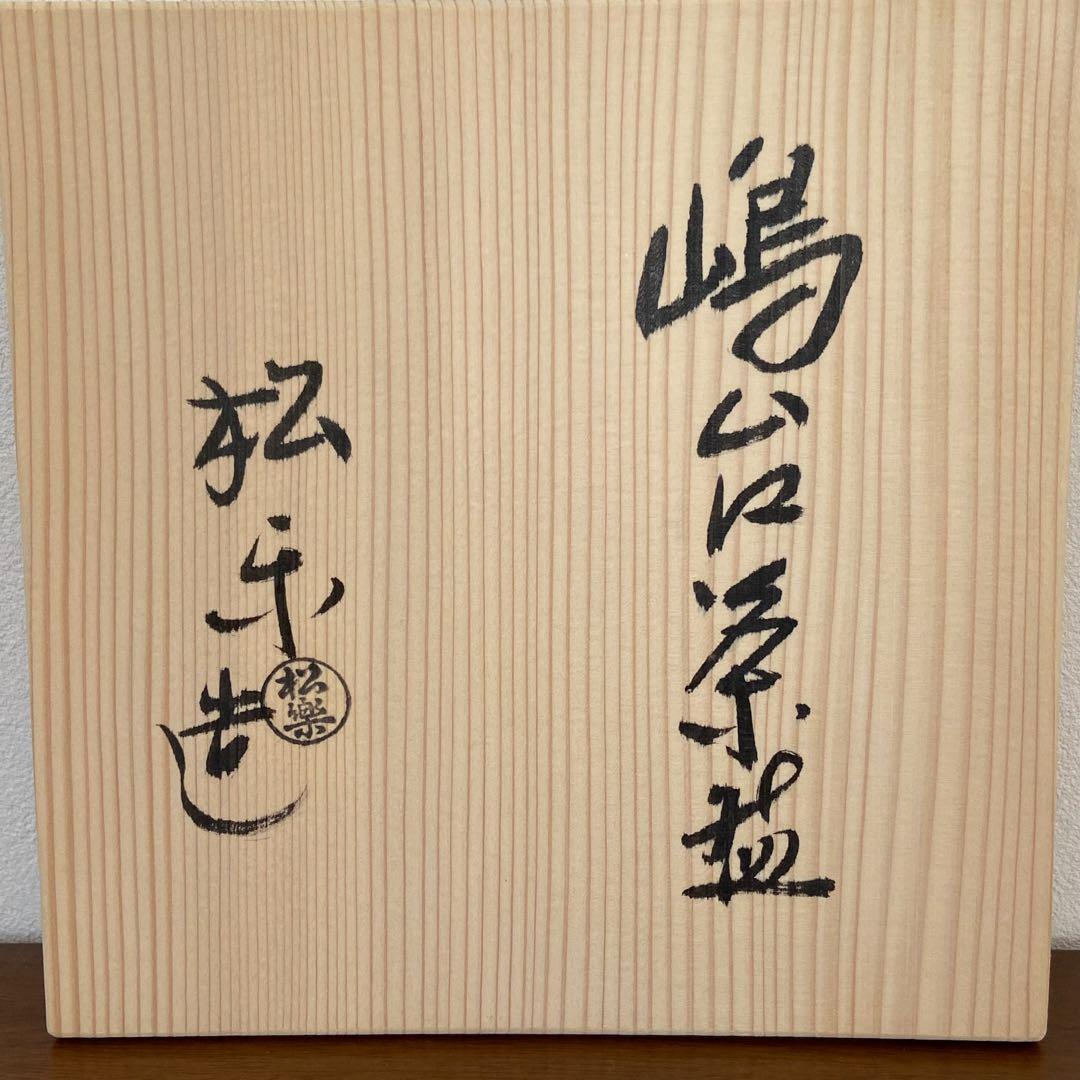 嶋台茶碗
松楽造
松樂